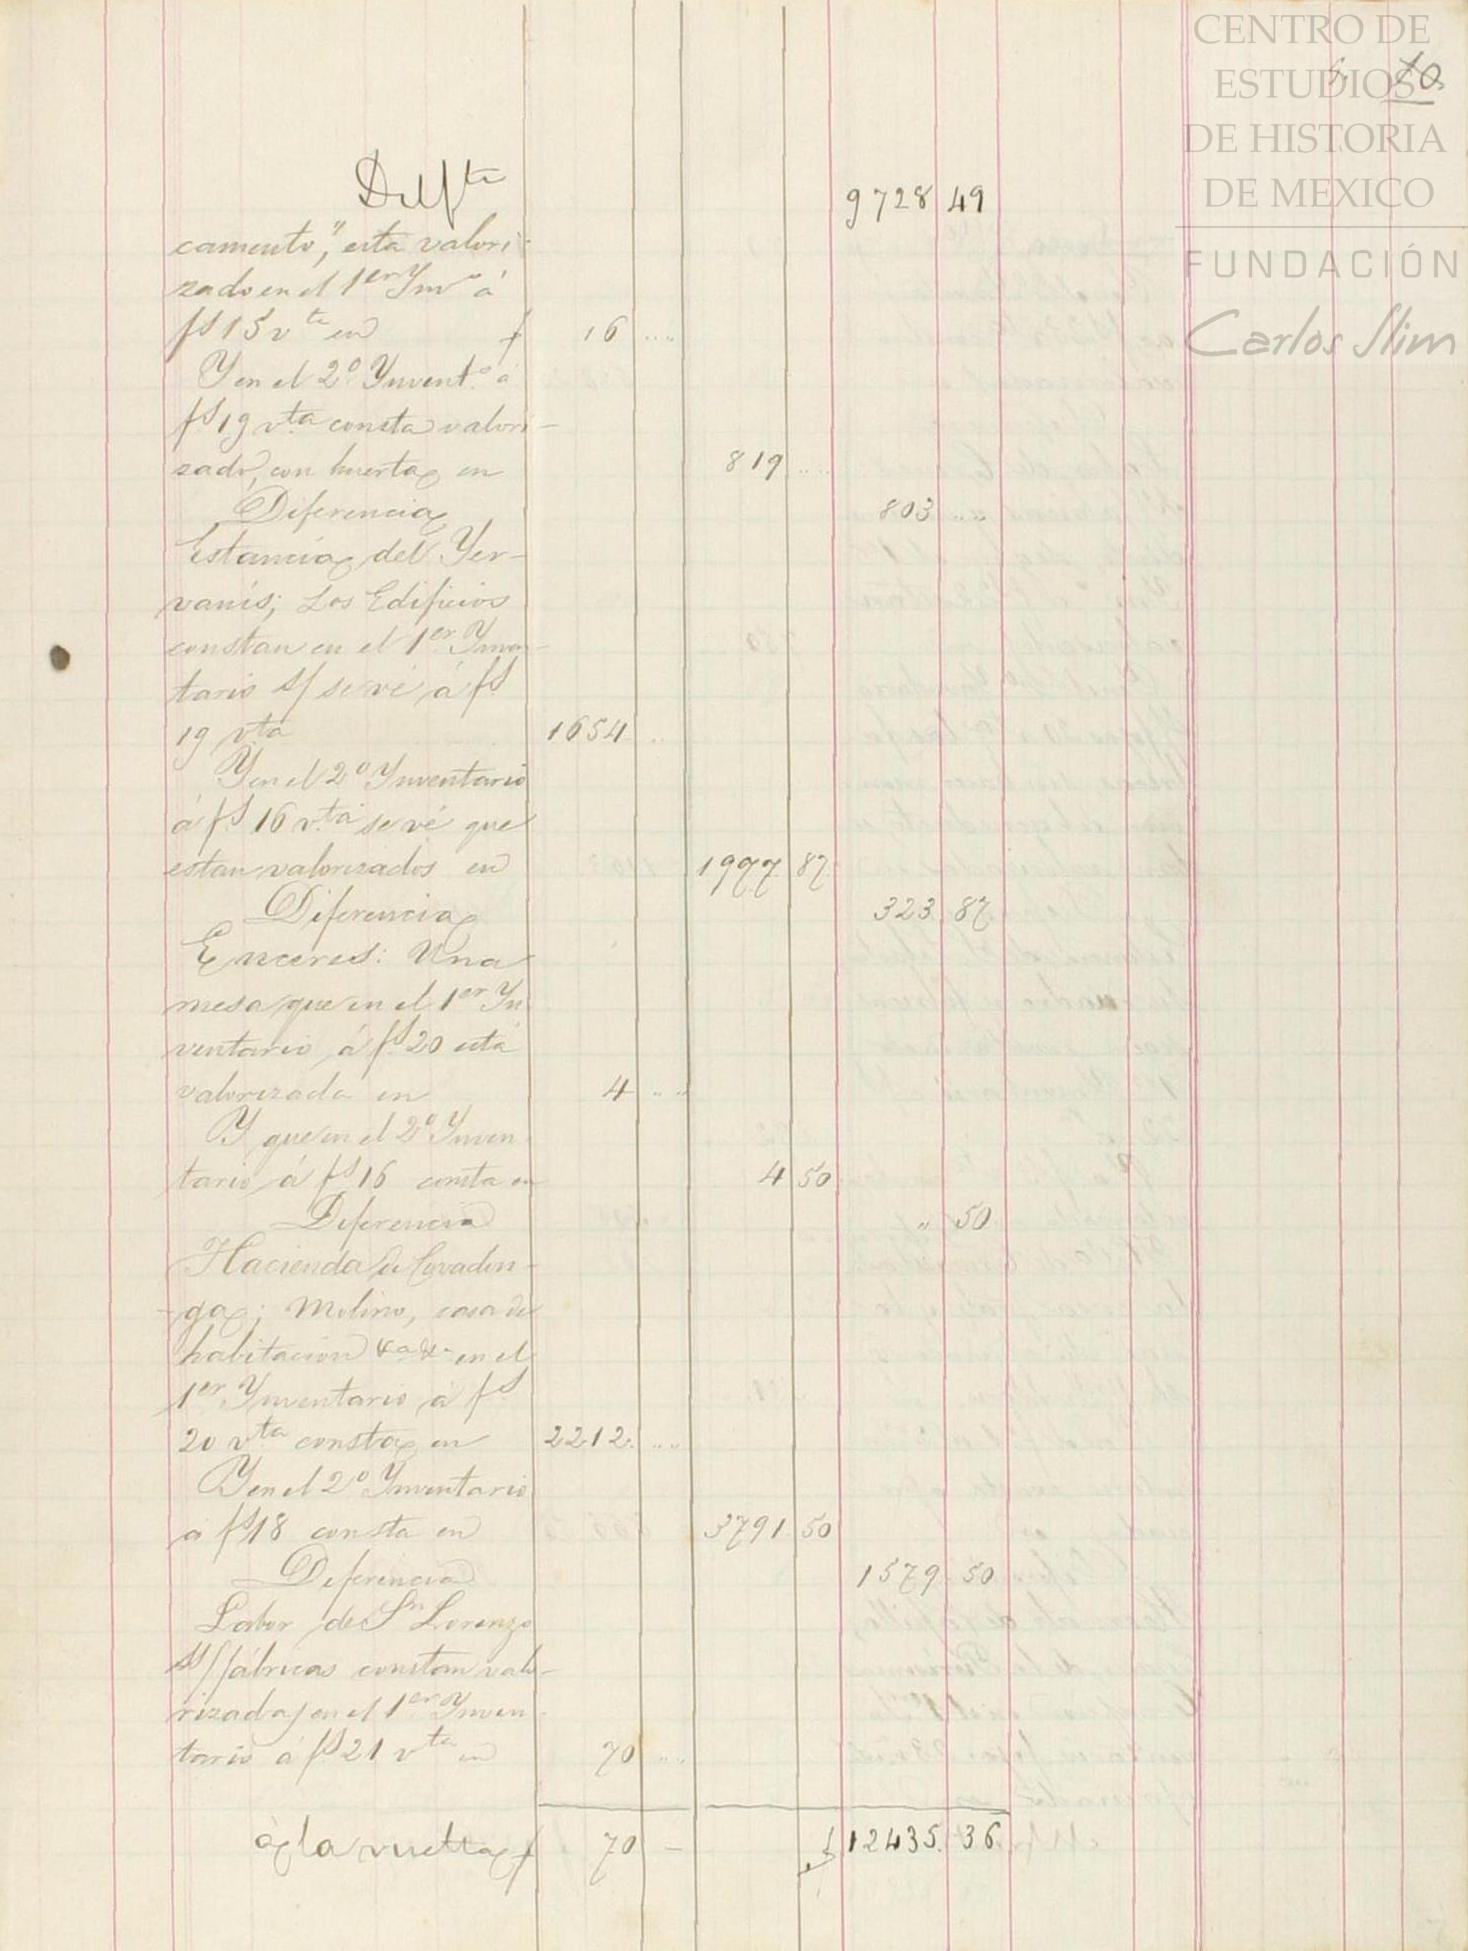 CENTRO DE
ESTUDIOS
DE HISTORIA
DE MEXICO
FUNDACIÓN
Carlos Slim
10
Del fte 9728 49
camento", esta valori-
zado en el 1er Ynvo á
fs 15 vta en $ 16 "
Y en el 2º Ynvento á
fs 19 vta consta valori-
zado, con huerta, en 819 "
Diferencia 803 "
Estancia del Yer-
vanís; Los Edificios
constan en el 1er Ynven-
tario s/ se vé á fs
19 vta 1654 "
Y en el 2º Ynventario
á fs 16 vta se vé que
estan valorizados en 1977 87
Diferencia 323 87
Enceres: Una
mesa que en el 1er Yn
ventario á fs 20 está
valorizada en 4 "
Y que en el 2º Ynven
tario á fs 16 consta en 4 50
Diferencia " 50
Hacienda de Covadon-
-ga; Molino, casa de
habitacion &a &a en el
1er Ynventario á fs
20 vta consta en 2212 "
Y en el 2º Ynventario
á fs 18 consta en 3791 50
Diferencia 1579 50
Labor de Sn Lorenzo
ss/ fábricas constan valo-
rizadas en el 1er Ynven-
tario á fs 21 vta en 70 "
á la vuelta $ 70 - $ 12435 36